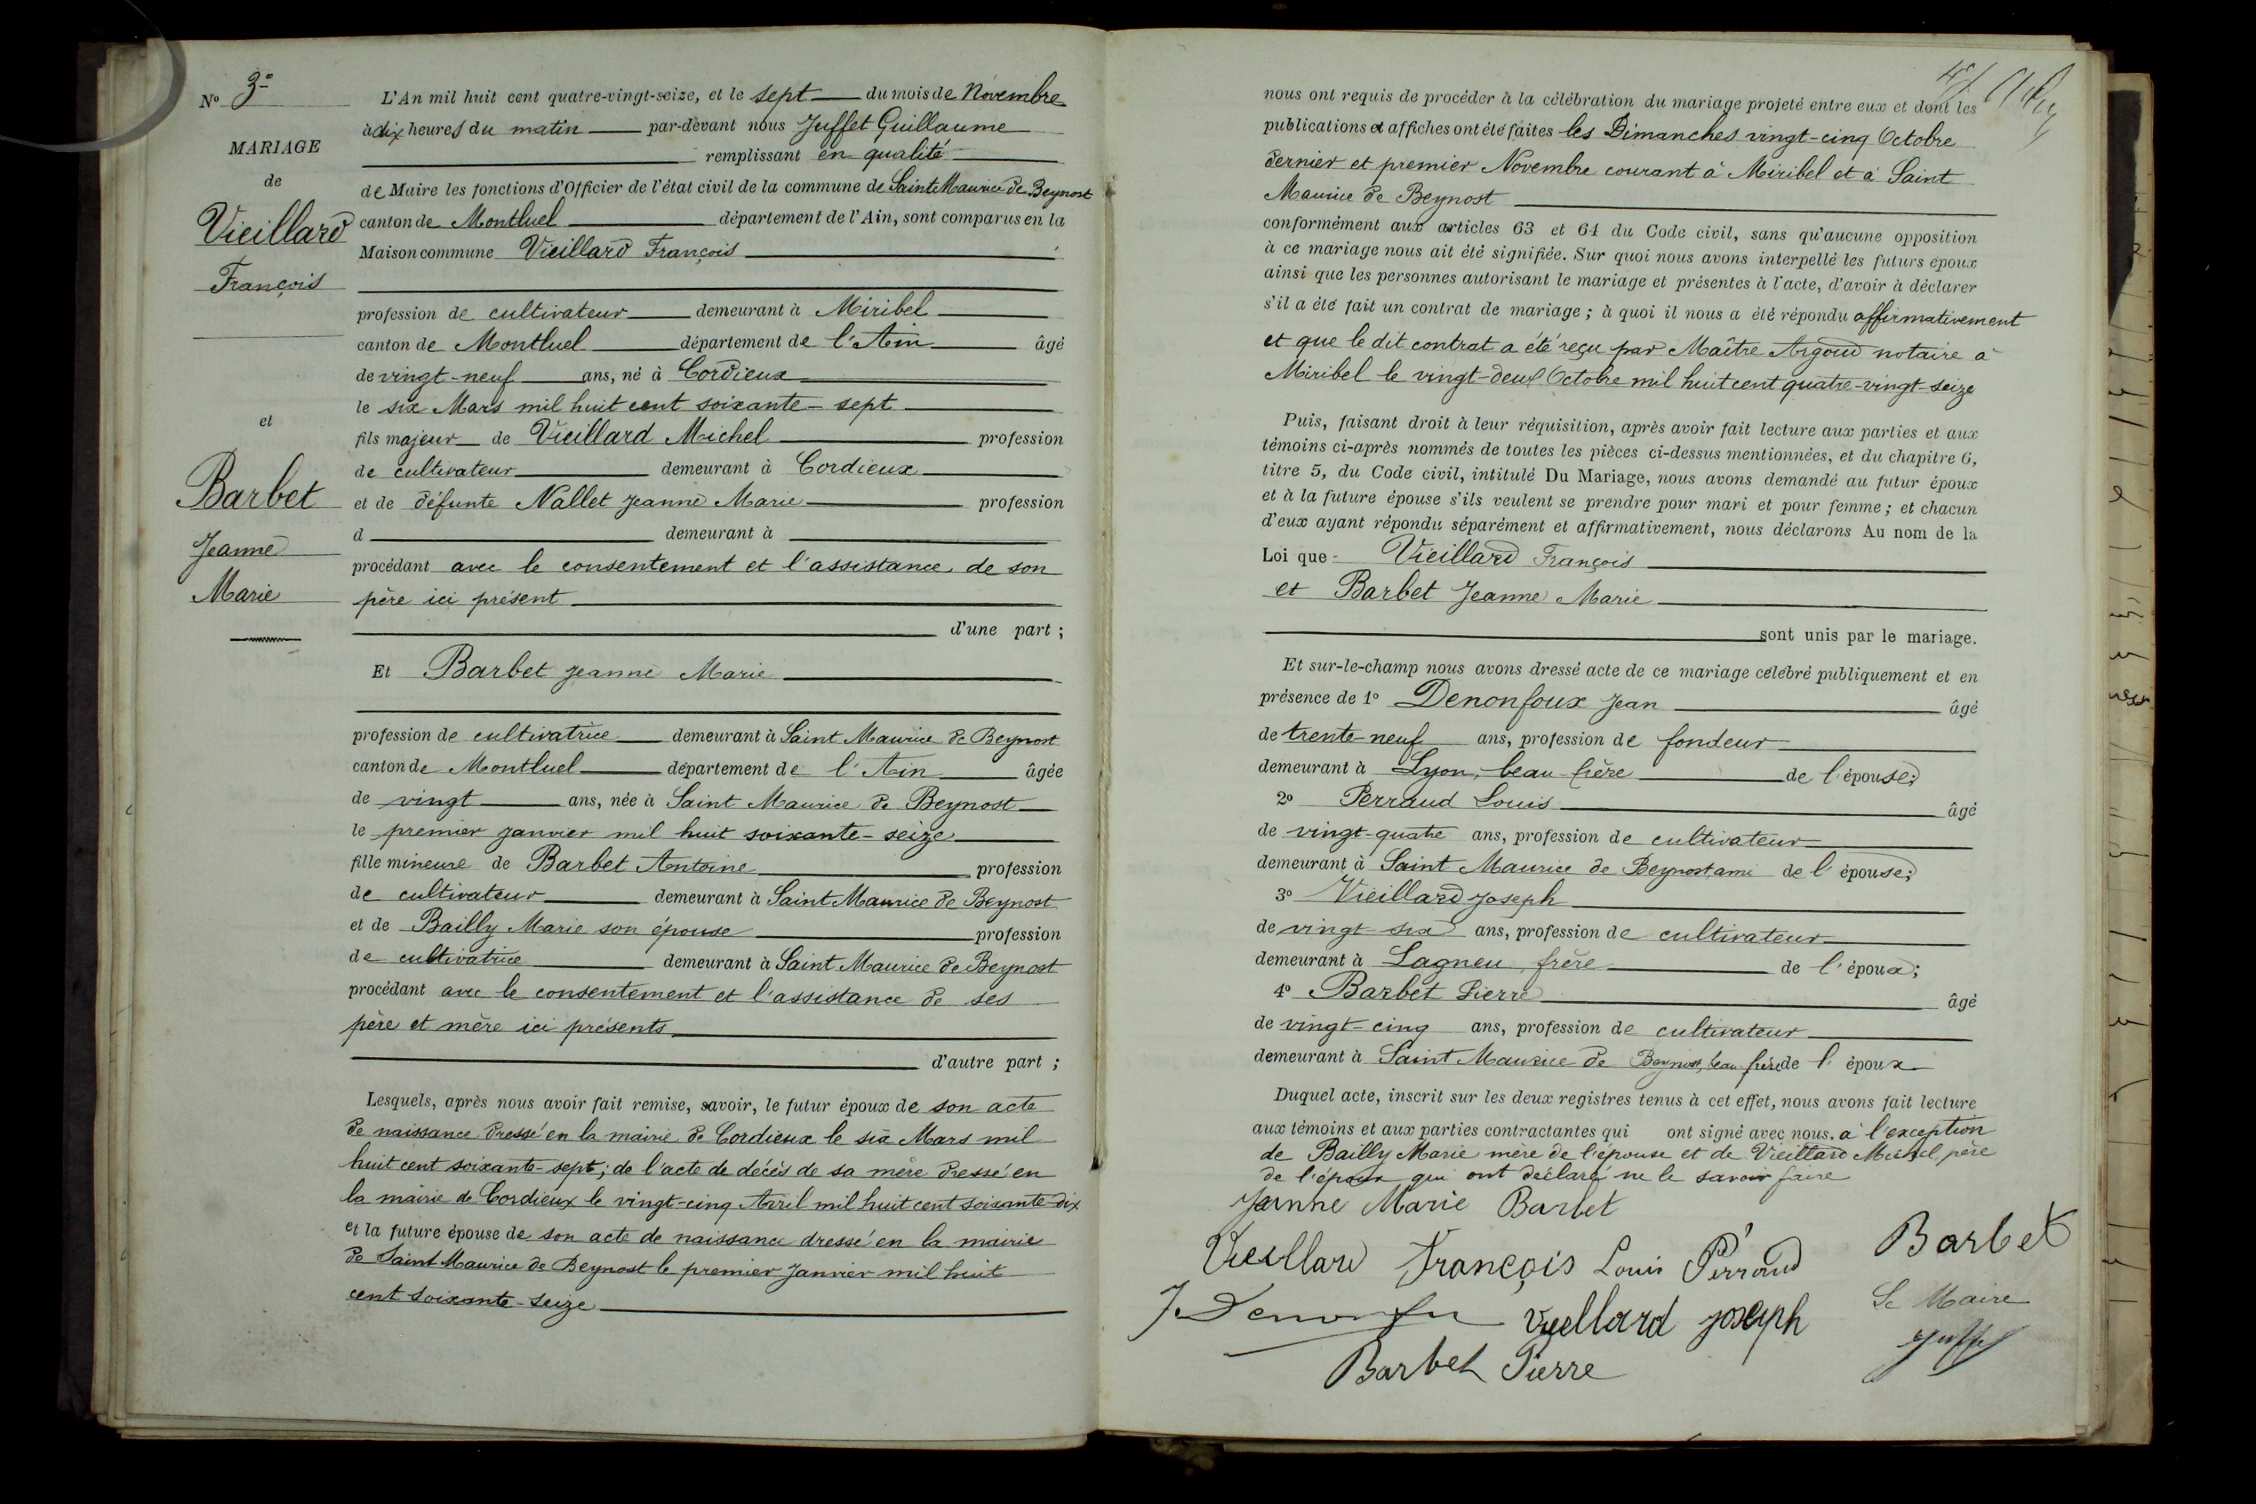 N° 3-
MARIAGE
de
Vieillard
François
et
Barbet
Jeanne
Marie
L'An mil huit cent quatre-vingt-seize, et le sept du mois de Novembre
à dix heures du matin par-devant nous Juffet Guillaume
remplissant en qualité
de Maire les fonctions d'Officier de l'état civil de la commune de Saint Maurice de Beynost
canton de Montluel département de l'Ain, sont comparus en la
Maison commune Vieillard François
profession de cultivateur demeurant à Miribel
canton de Montluel département de l'Ain âgé
de vingt-neuf ans, né à Cordieux
le six Mars mil huit cent soixante-sept
fils majeur de Vieillard Michel profession
de cultivateur demeurant à Cordieux
et de défunte Nallet Jeanne Marie profession
d demeurant à
procédant avec le consentement et l'assistance de son
père ici présent
d'une part ;
Et Barbet Jeanne Marie
profession de cultivatrice demeurant à Saint Maurice de Beynost
canton de Montluel département de l'Ain âgée
de vingt ans, née à Saint Maurice de Beynost
le premier janvier mil huit soixante-seize
fille mineure de Barbet Antoine profession
de cultivateur demeurant à Saint Maurice de Beynost
et de Bailly Marie son épouse profession
de cultivatrice demeurant à Saint Maurice de Beynost
procédant avec le consentement et l'assistance de ses
père et mère ici présents
d'autre part ;
Lesquels, après nous avoir fait remise, savoir, le futur époux de son acte
de naissance dressé en la mairie de Cordieux le six Mars mil
huit cent soixante-sept ; de l'acte de décès de sa mère dressé en
la mairie de Cordieux le vingt-cinq Avril mil huit cent soixante-dix
et la future épouse de son acte de naissance dressé en la mairie
de Saint Maurice de Beynost le premier Janvier mil huit
cent soixante-seize
nous ont requis de procéder à la célébration du mariage projeté entre eux et dont les
publications et affiches ont été faites les Dimanches vingt-cinq Octobre
dernier et premier Novembre courant à Miribel et à Saint
Maurice de Beynost
conformément aux articles 63 et 64 du Code civil, sans qu'aucune opposition
à ce mariage nous ait été signifiée. Sur quoi nous avons interpellé les futurs époux
ainsi que les personnes autorisant le mariage et présentes à l'acte, d'avoir à déclarer
s'il a été fait un contrat de mariage ; à quoi il nous a été répondu affirmativement
et que le dit contrat a été reçu par Maître Argoud notaire à
Miribel le vingt-deux Octobre mil huit cent quatre-vingt-seize
Puis, faisant droit à leur réquisition, après avoir fait lecture aux parties et aux
témoins ci-après nommés de toutes les pièces ci-dessus mentionnées, et du chapitre 6,
titre 5, du Code civil, intitulé Du Mariage, nous avons demandé au futur époux
et à la future épouse s'ils veulent se prendre pour mari et pour femme ; et chacun
d'eux ayant répondu séparément et affirmativement, nous déclarons Au nom de la
Loi que Vieillard François
et Barbet Jeanne Marie
sont unis par le mariage.
Et sur-le-champ nous avons dressé acte de ce mariage célébré publiquement et en
présence de 1° Denonfoux Jean âgé
de trente-neuf ans, profession de fondeur
demeurant à Lyon, beau-frère de l'épouse ;
2° Perraud Louis âgé
de vingt-quatre ans, profession de cultivateur
demeurant à Saint Maurice de Beynost, ami de l'épouse ;
3° Vieillard Joseph
de vingt six ans, profession de cultivateur
demeurant à Lagneu, frère de l'époux ;
4° Barbet Pierre âgé
de vingt-cinq ans, profession de cultivateur
demeurant à Saint Maurice de Beynost, beau frère de l'époux
Duquel acte, inscrit sur les deux registres tenus à cet effet, nous avons fait lecture
aux témoins et aux parties contractantes qui ont signé avec nous. à l'exception
de Bailly Marie mère de l'épouse et de Vieillard Michel, père
de l'époux qui ont déclaré ne le savoir faire
Jeanne Marie Barbet
Vieillard François Louis Pérraud Barbet
J Denonfou Vieillard joseph Le Maire
Barbet Pierre Juffet